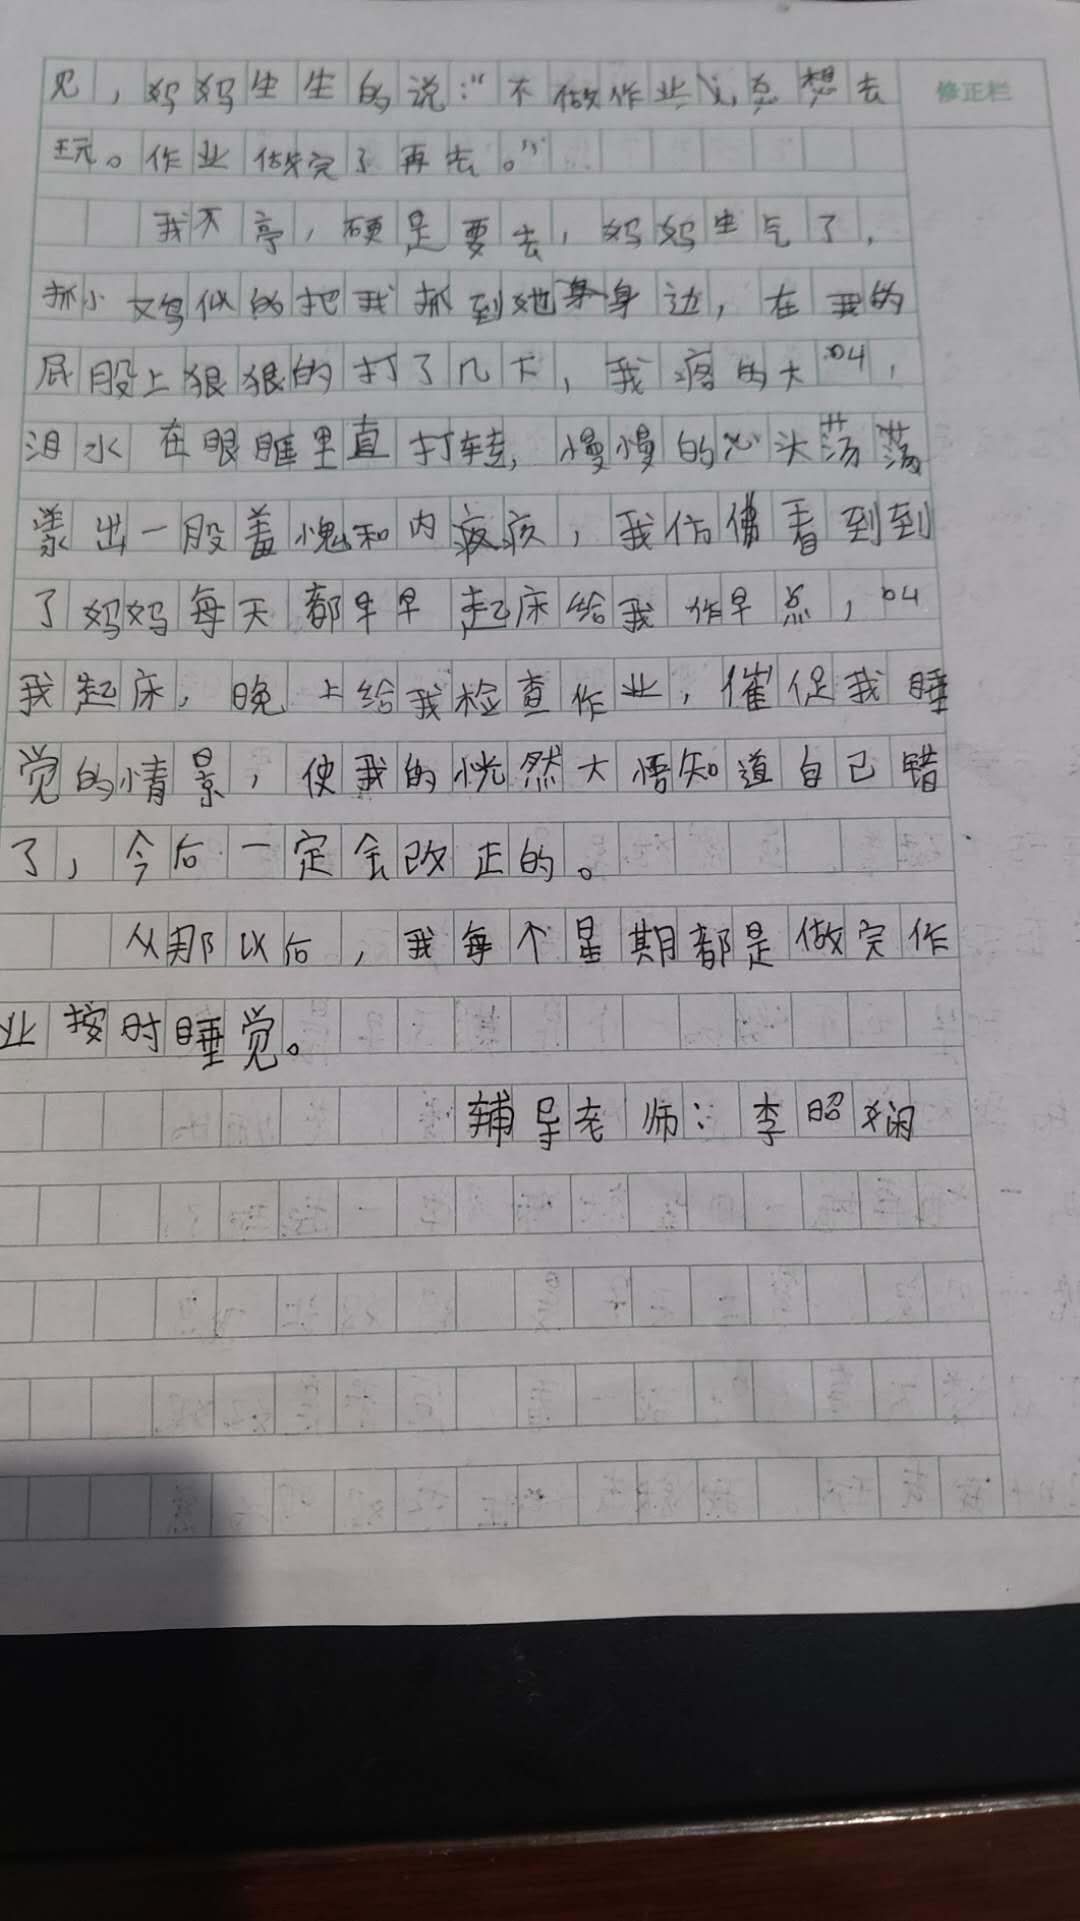 见，妈妈生生的说：“不做作业，总想去
修正栏
玩。作业做完了再去。”
我不亭，硬是要去，妈妈生气了，
抓小鸡似的把我抓到她身边，在我的
屁股上狠狠的打了几下，我疼的大叫，
泪水在眼眶里直打转，慢慢的心头荡荡
漾出一股羞愧和内疚，我仿佛看到到
了妈妈每天都早早起床给我作早点，叫
我起床，晚上给我检查作业，催促我睡
觉的情景，使我的恍然大悟知道自己错
了，今后一定会改正的。
从那以后，我每个星期都是做完作
业按时睡觉。
辅导老师：李昭娴